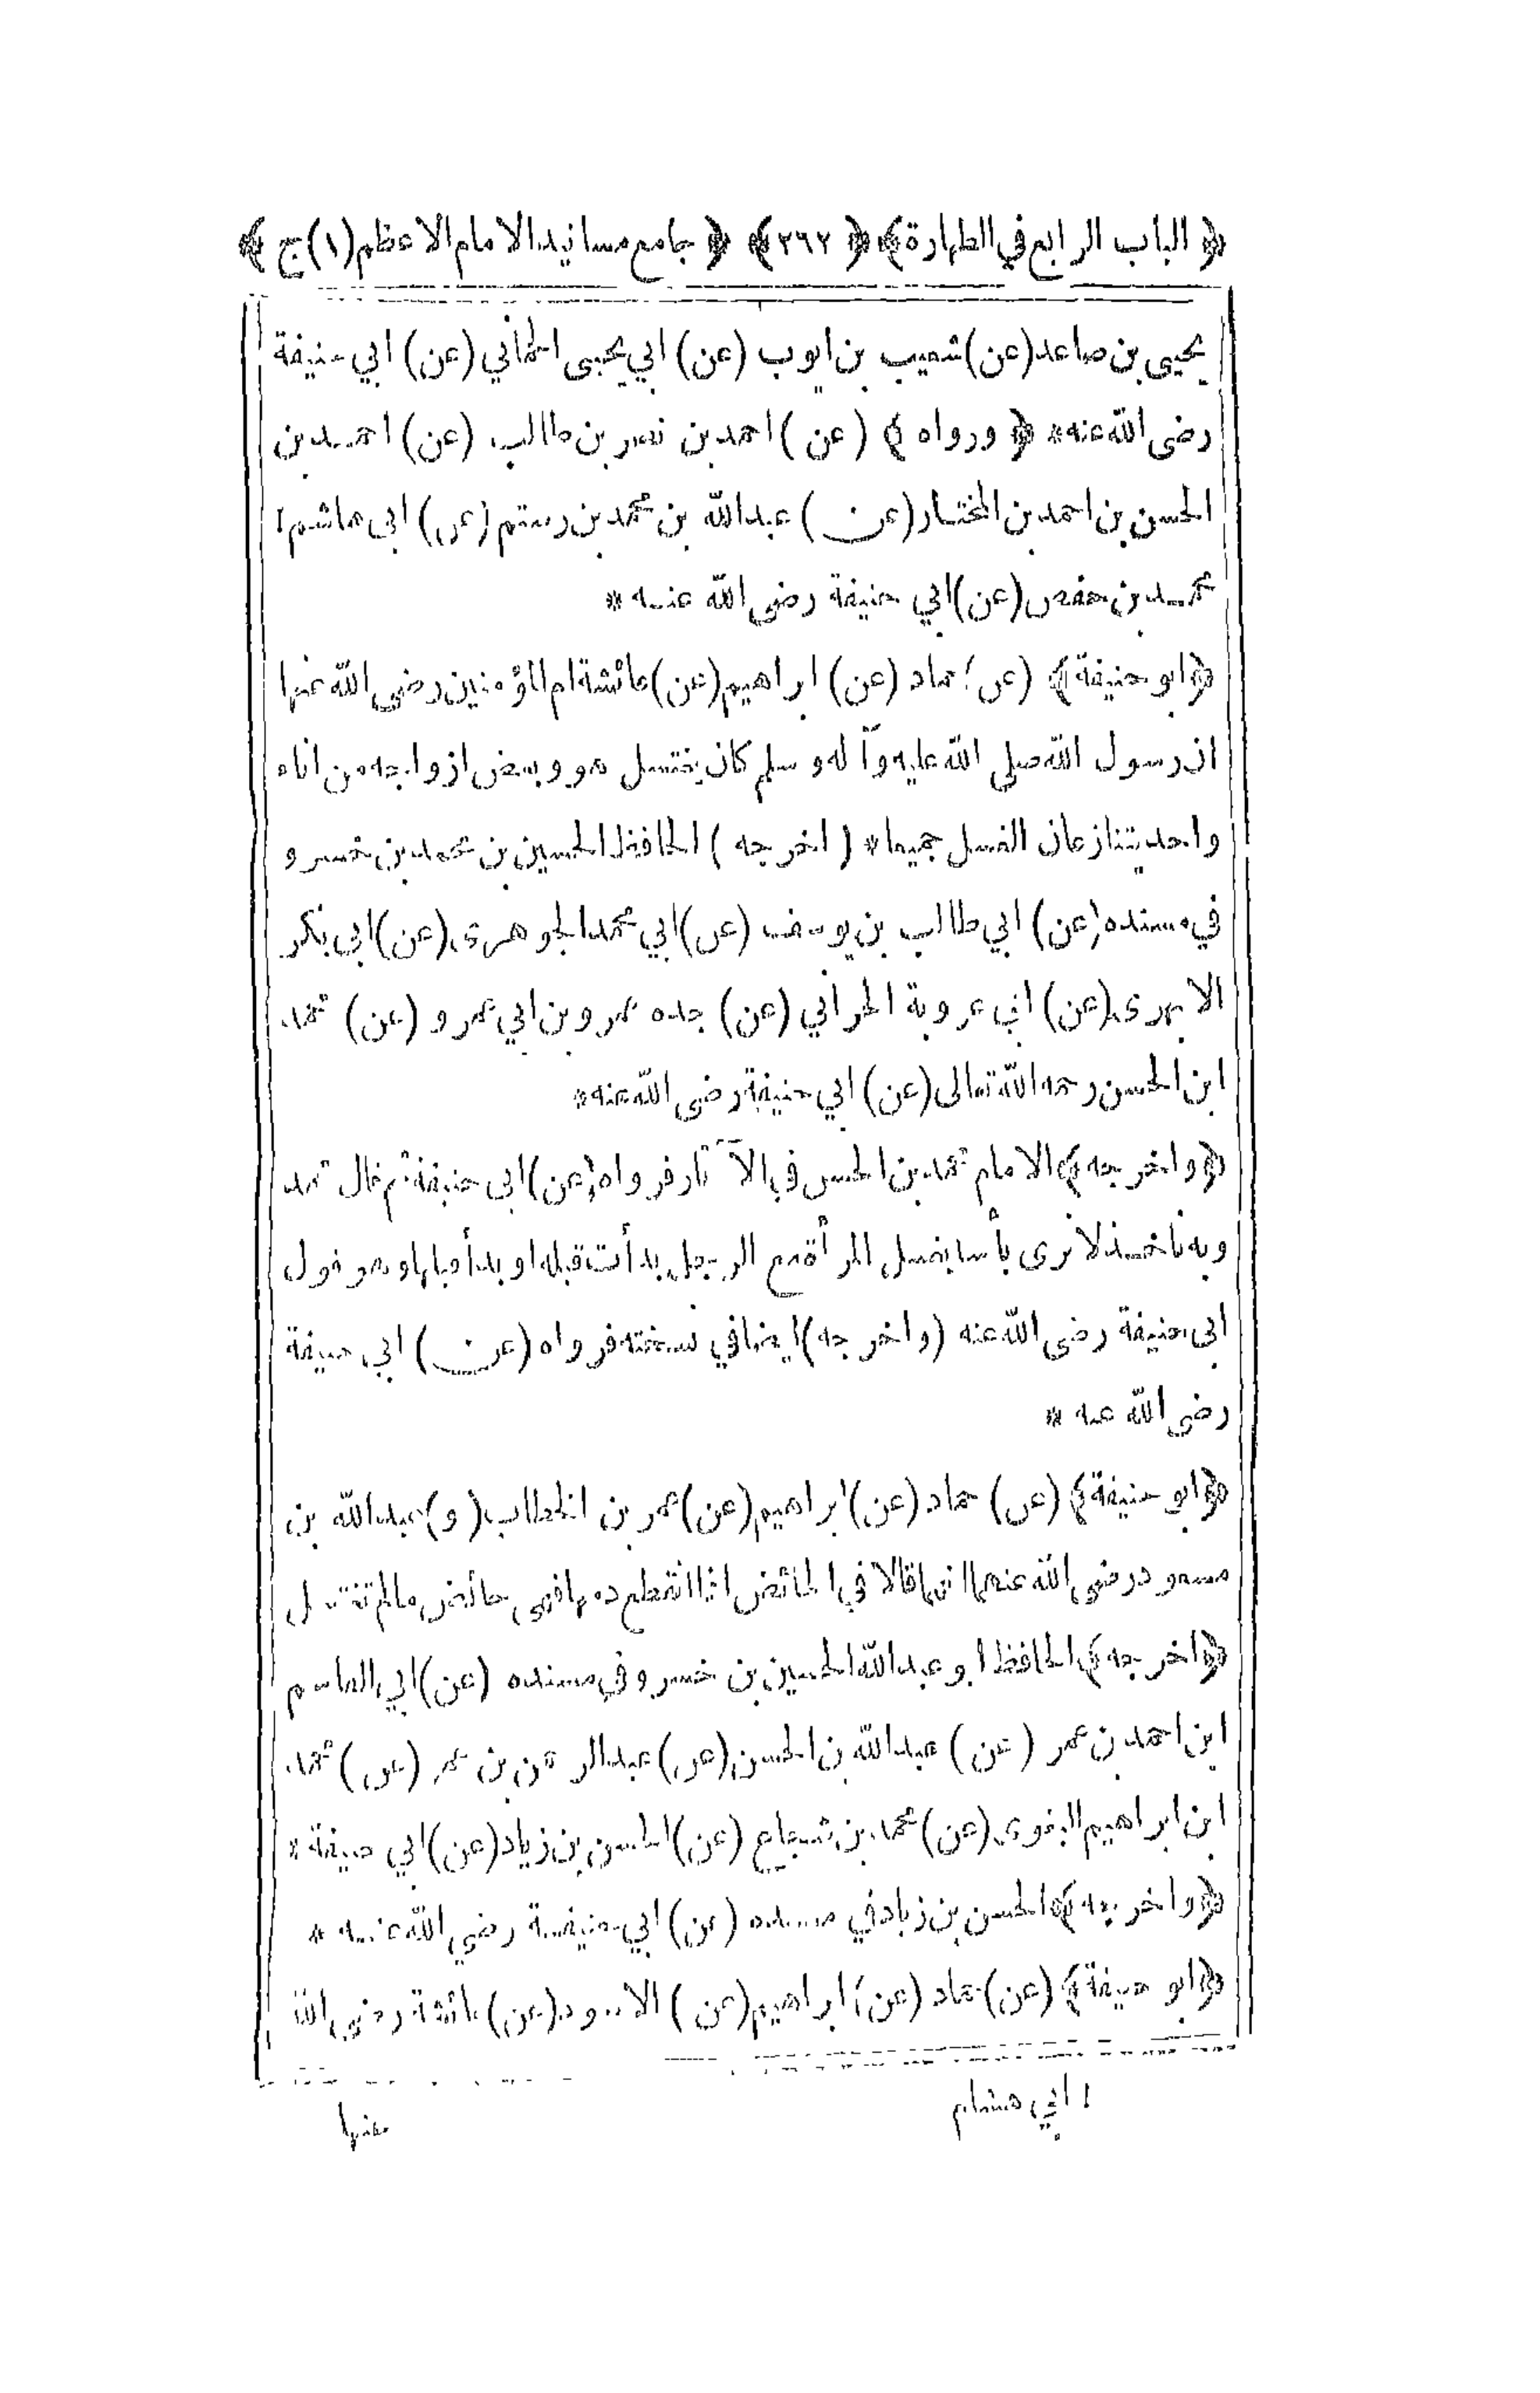 ﴿ الباب الرابع في الطهارة ﴾ ﴿ ٢٦٢ ﴾ ﴿ جامع مسانيد الامام الاعظم (١) ج ﴾
يحيى بن صاعد (عن) شعيب بن ايوب (عن) ابي يحيى الحماني (عن) ابي حنيفة
رضى الله عنه * ﴿ ورواه ﴾ (عن) احمد بن نصر بن طالب (عن) احمد بن
الحسن بن احمد بن المختار (عن) عبد الله بن محمد بن رستم (عن) ابى هاشم ١
محمد بن حفص (عن) ابي حنيفة رضى الله عنه *
﴿ ابو حنيفة ﴾ (عن) حماد (عن) ابراهيم (عن) عائشة ام المؤمنين رضى الله عنها
ان رسول الله صلى الله عليه وآله وسلم كان يغتسل هو وبعض ازواجه من اناء
واحد يتنازعان الغسل جميعا * (اخرجه) الحافظ الحسين بن محمد بن خسرو
في مسنده (عن) ابي طالب بن يوسف (عن) ابي محمد الجوهرى (عن) ابى بكر
الابهرى (عن) ابي عروبة الحراني (عن) جده عمرو بن ابي عمرو (عن) محمد
ابن الحسن رحمه الله تعالى (عن) ابي حنيفة رضى الله عنه *
﴿ واخرجه ﴾ الامام محمد بن الحسن في الآثار فرواه (عن) ابى حنيفة ثم قال محمد
وبه ناخذ لا نرى بأسا بغسل المرأة مع الرجل بدأت قبله او بدأ قبلها وهو قول
ابى حنيفة رضى الله عنه (واخرجه) ايضا في نسخته فرواه (عن) ابى حنيفة
رضى الله عنه *
﴿ ابو حنيفة ﴾ (عن) حماد (عن) ابراهيم (عن) عمر بن الخطاب (و) عبد الله بن
مسعود رضى الله عنهما انهما قالا في الحائض اذا انقطع دمها فهى حائض مالم تغتسل
﴿ اخرجه ﴾ الحافظ ابو عبد الله الحسين بن خسرو في مسنده (عن) ابي القاسم
ابن احمد بن عمر (عن) عبد الله بن الحسن (عن) عبد الرحمن بن عمر (عن) محمد
ابن ابراهيم البغوى (عن) محمد بن شجاع (عن) الحسن بن زياد (عن) ابي حنيفة *
﴿ واخرجه ﴾ الحسن بن زياد في مسنده (عن) ابي حنيفة رضى الله عنه *
﴿ ابو حنيفة ﴾ (عن) حماد (عن) ابراهيم (عن) الاسود (عن) عائشة رضى الله
١ ابي هشام
عنها